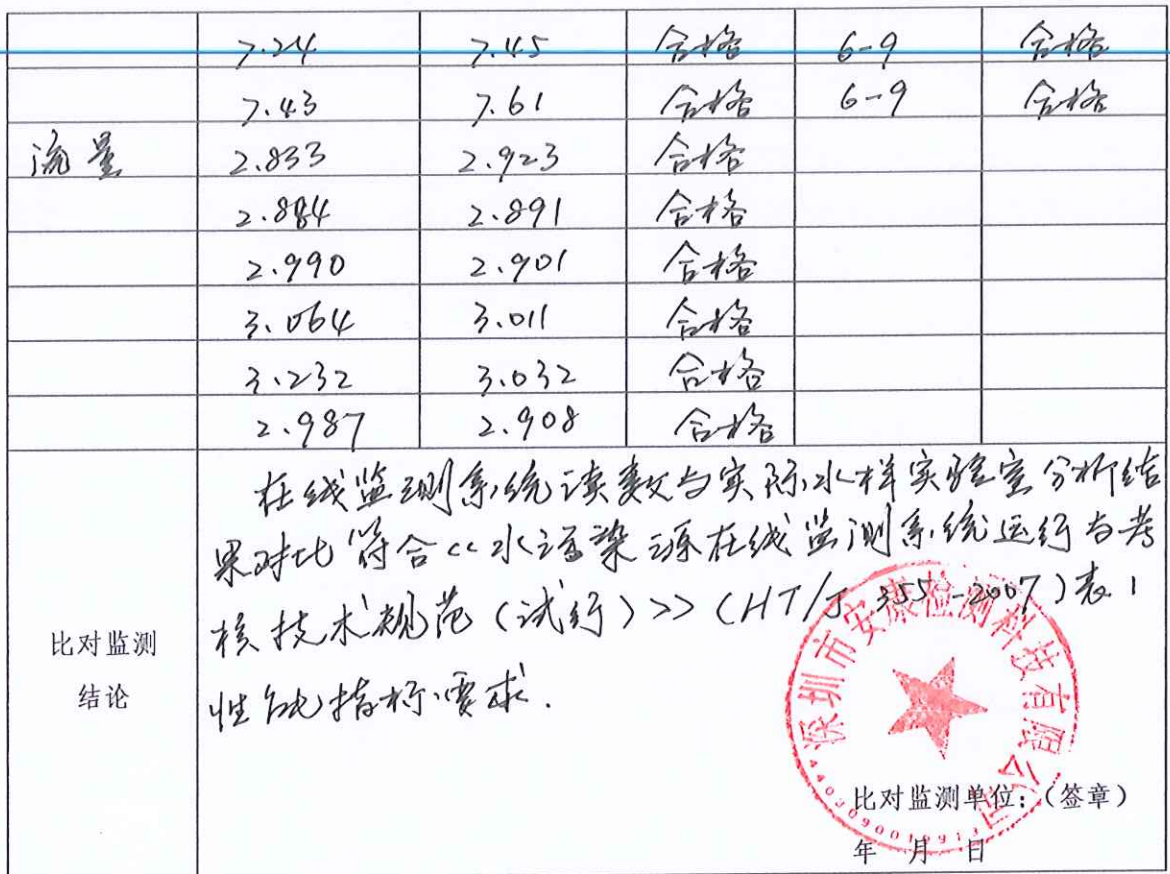 7.24 7.45 合格 6-9 合格
7.43 7.61 合格 6-9 合格
流量 2.833 2.923 合格
2.884 2.891 合格
2.990 2.901 合格
3.064 3.011 合格
3.232 3.032 合格
2.987 2.908 合格
比对监测
结论
在线监测系统读数与实际水样实验室分析结
果对比符合<<水污染源在线监测系统运行与考
核技术规范(试行)>>(HT/J 355-2007)表1
性能指标要求.
深圳市安康检测科技有限公司
比对监测单位:(签章)
年 月 日